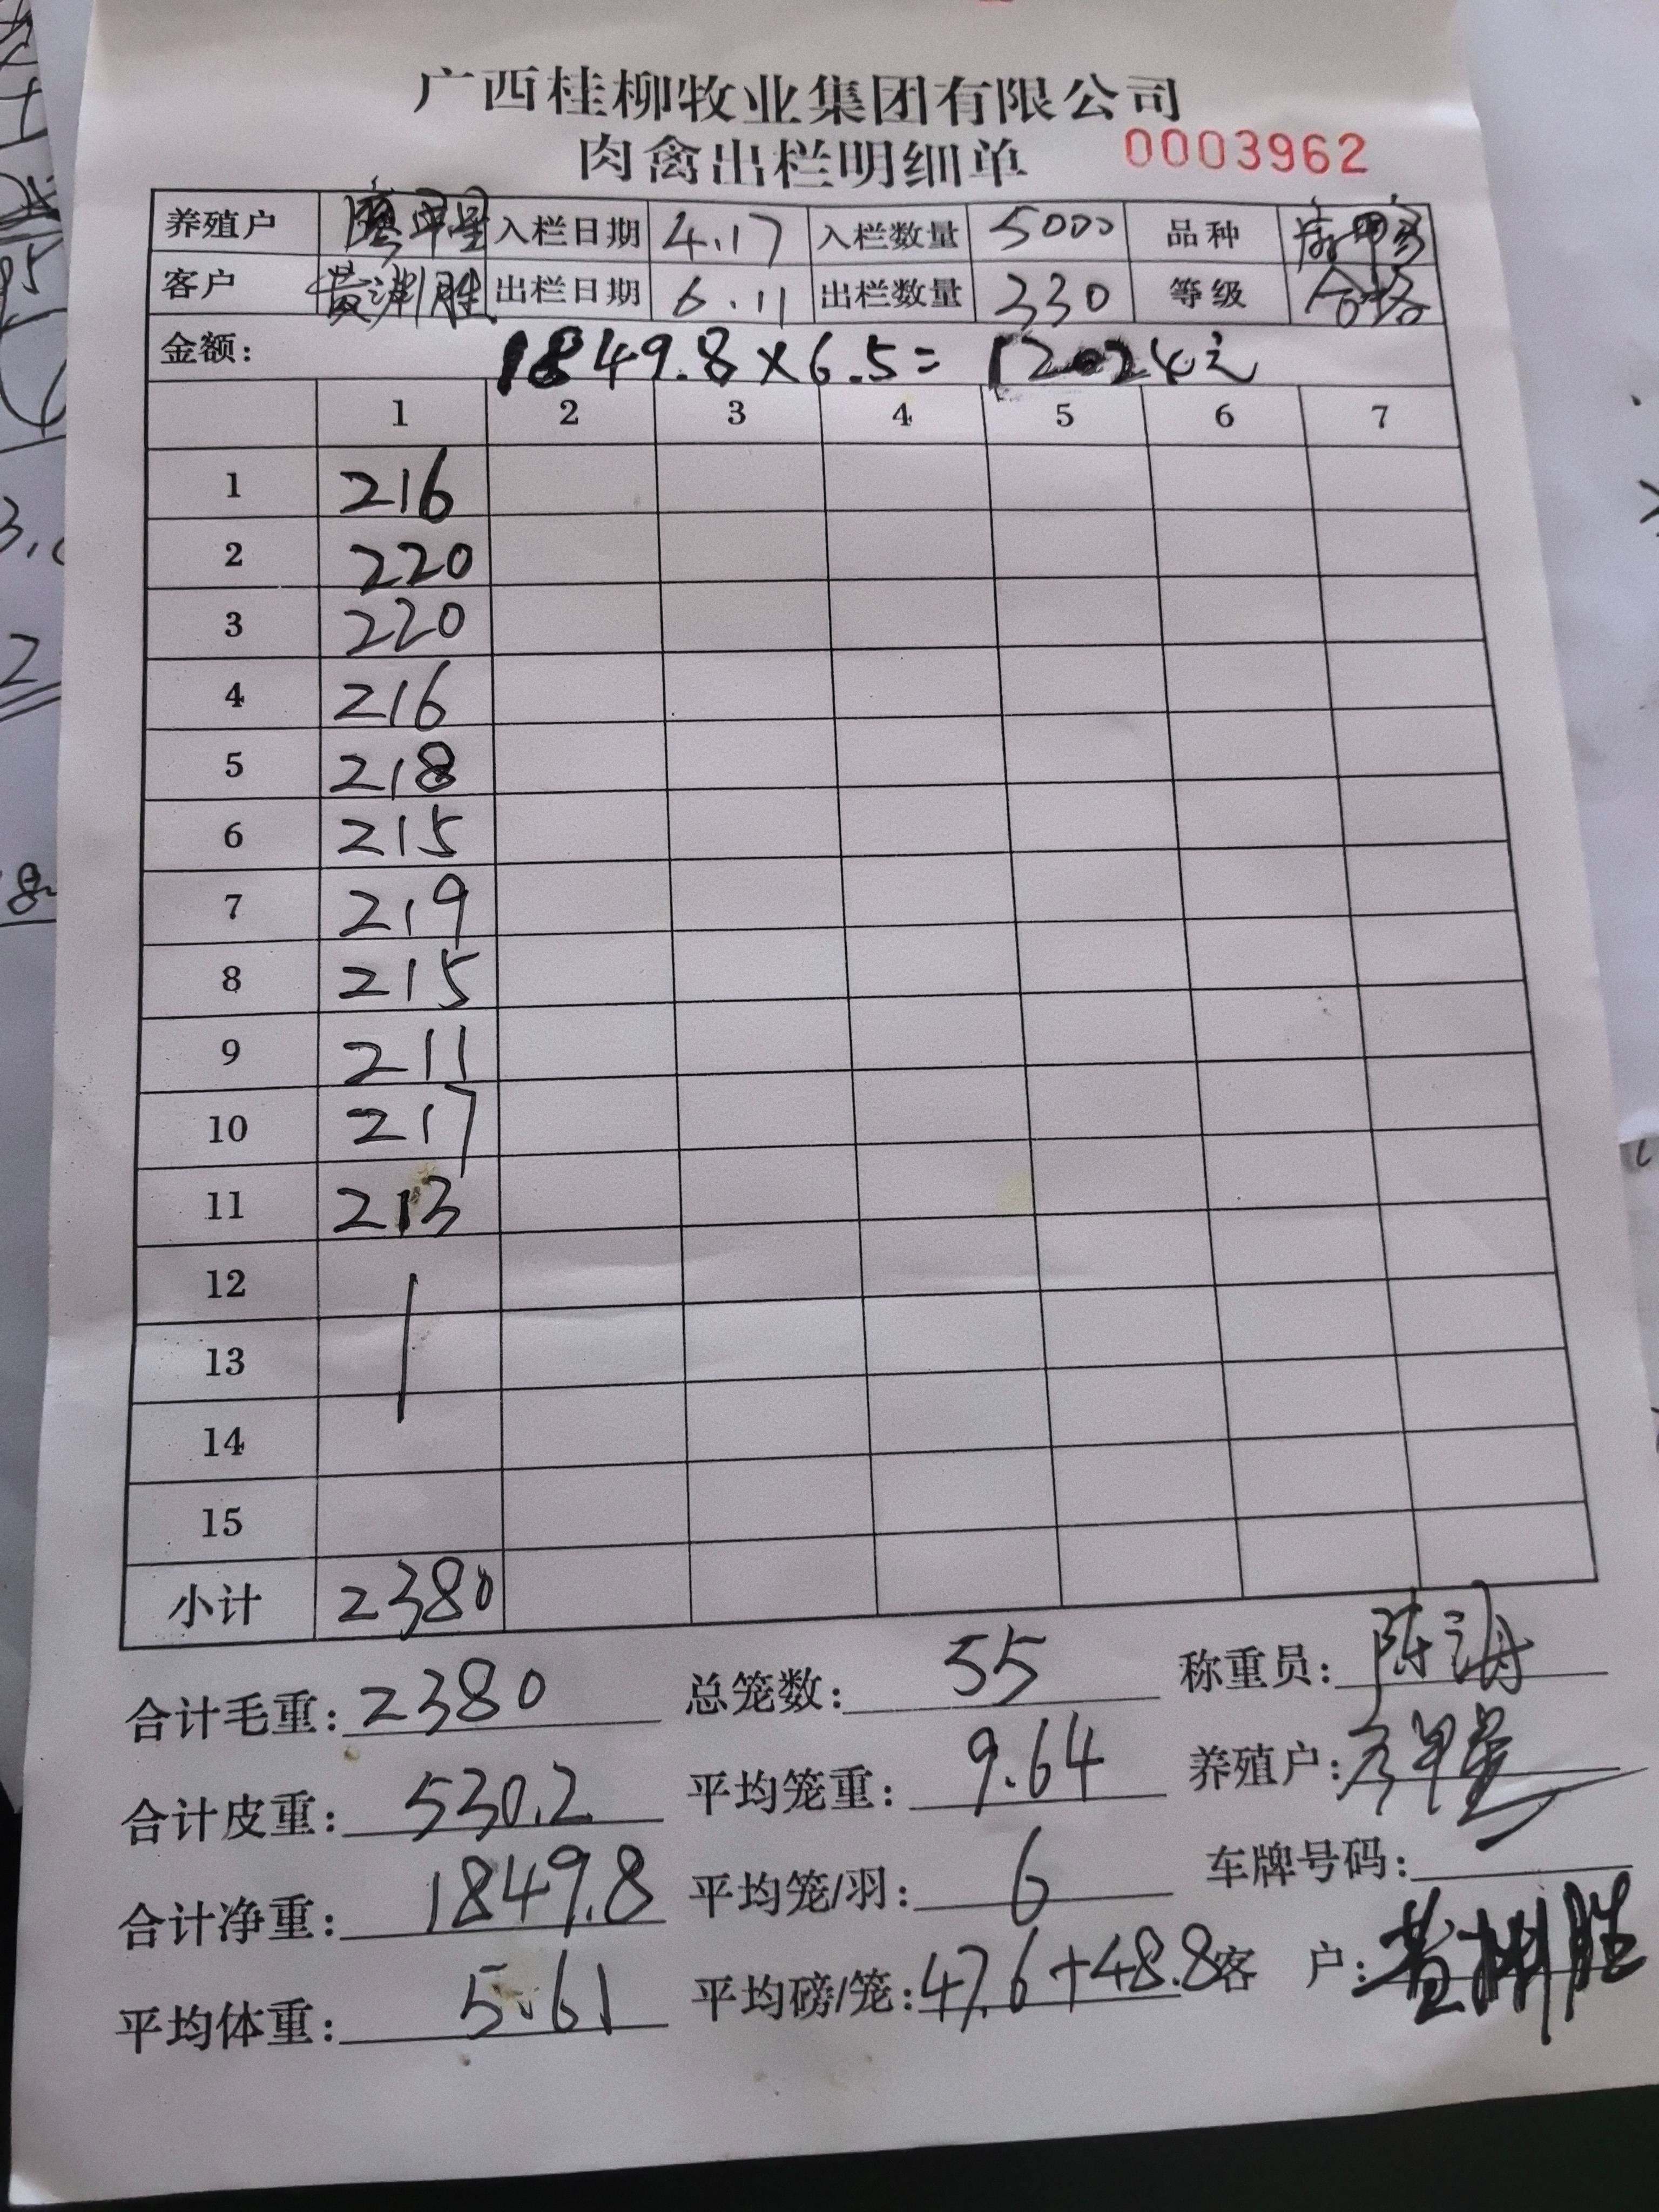 广西桂柳牧业集团有限公司
肉禽出栏明细单 0003962
养殖户 入栏日期 4.17 入栏数量 5000 品种
客户 黄渊胜 出栏日期 6.11 出栏数量 330 等级 合格
金额: 1849.8×6.5=12024元
1 2 3 4 5 6 7
1 216
2 220
3 220
4 216
5 218
6 215
7 219
8 215
9 211
10 217
11 213
12
13
14
15
小计 2380
合计毛重: 2380 总笼数: 55 称重员: 陈海
合计皮重: 530.2 平均笼重: 9.64 养殖户:
合计净重: 1849.8 平均笼/羽: 6 车牌号码:
平均体重: 5.61 平均磅/笼: 47.6+48.8 客户: 黄渊胜